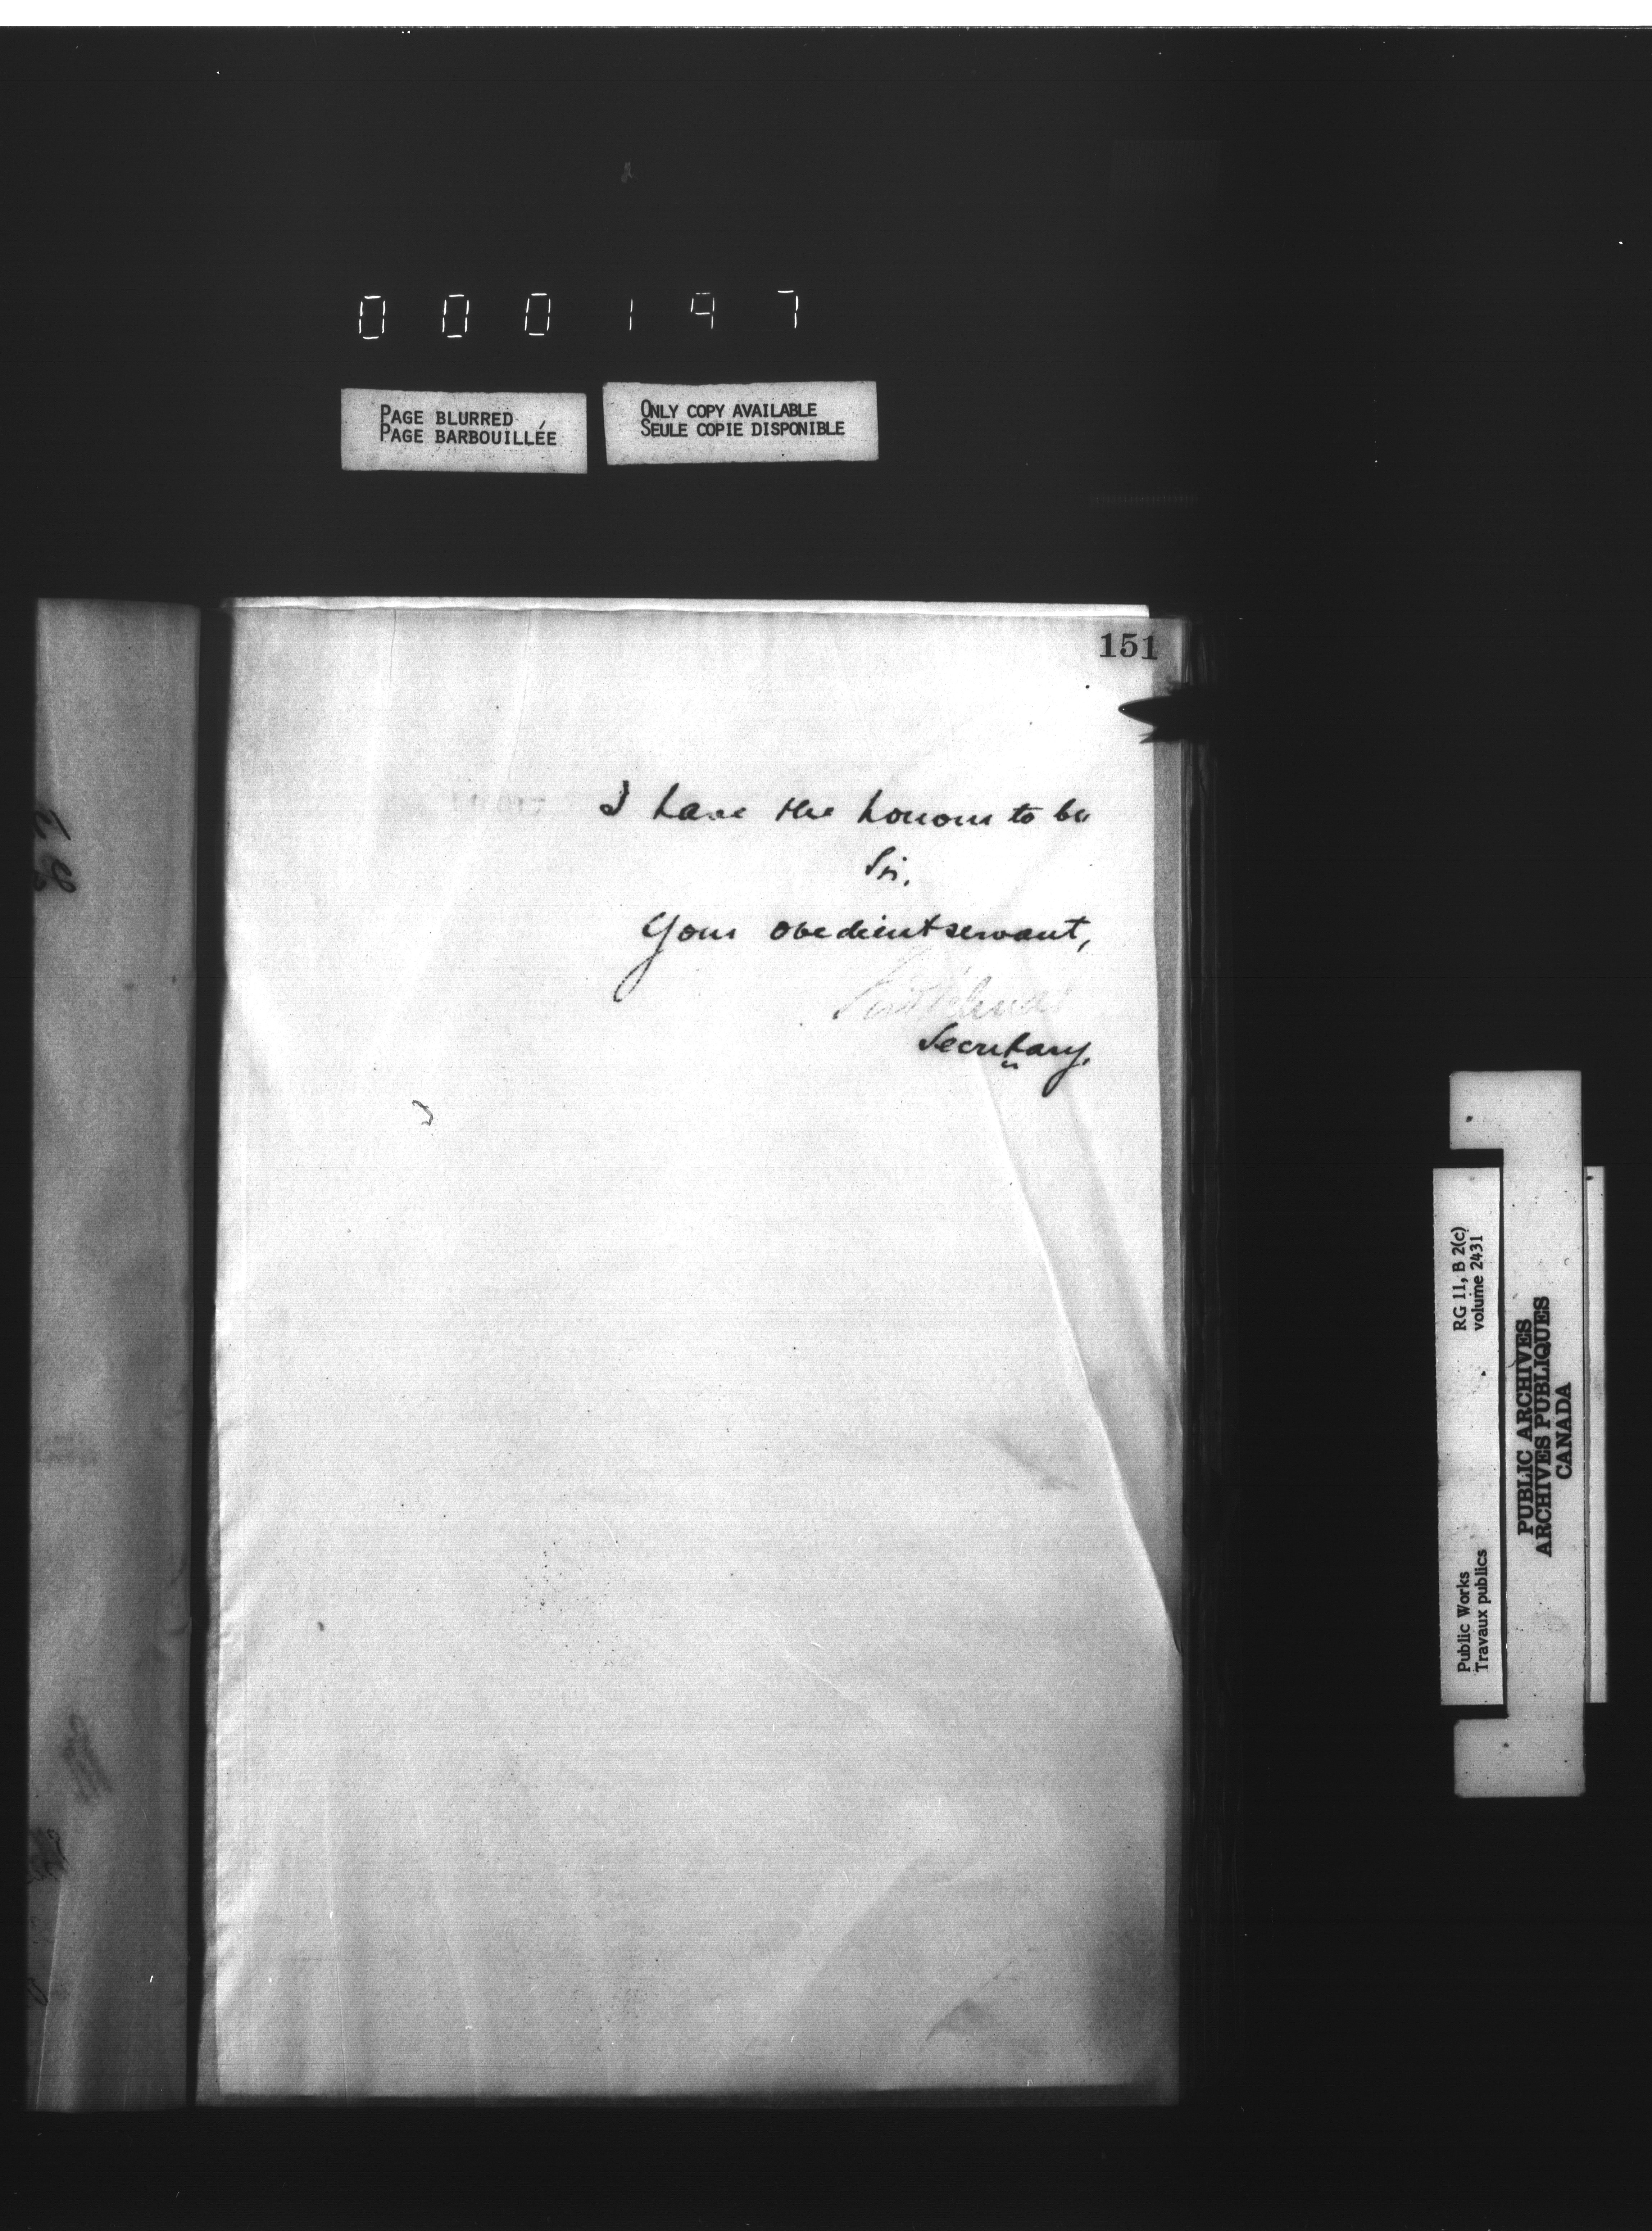 000197
PAGE BLURRED
PAGE BARBOUILLÉE
ONLY COPY AVAILABLE
SEULE COPIE DISPONIBLE
151
I have the honour to be
Sir,
Your obedient servant,
Secretary.
Public Works
Travaux publics
RG 11, B 2(c)
volume 2431
PUBLIC ARCHIVES
ARCHIVES PUBLIQUES
CANADA